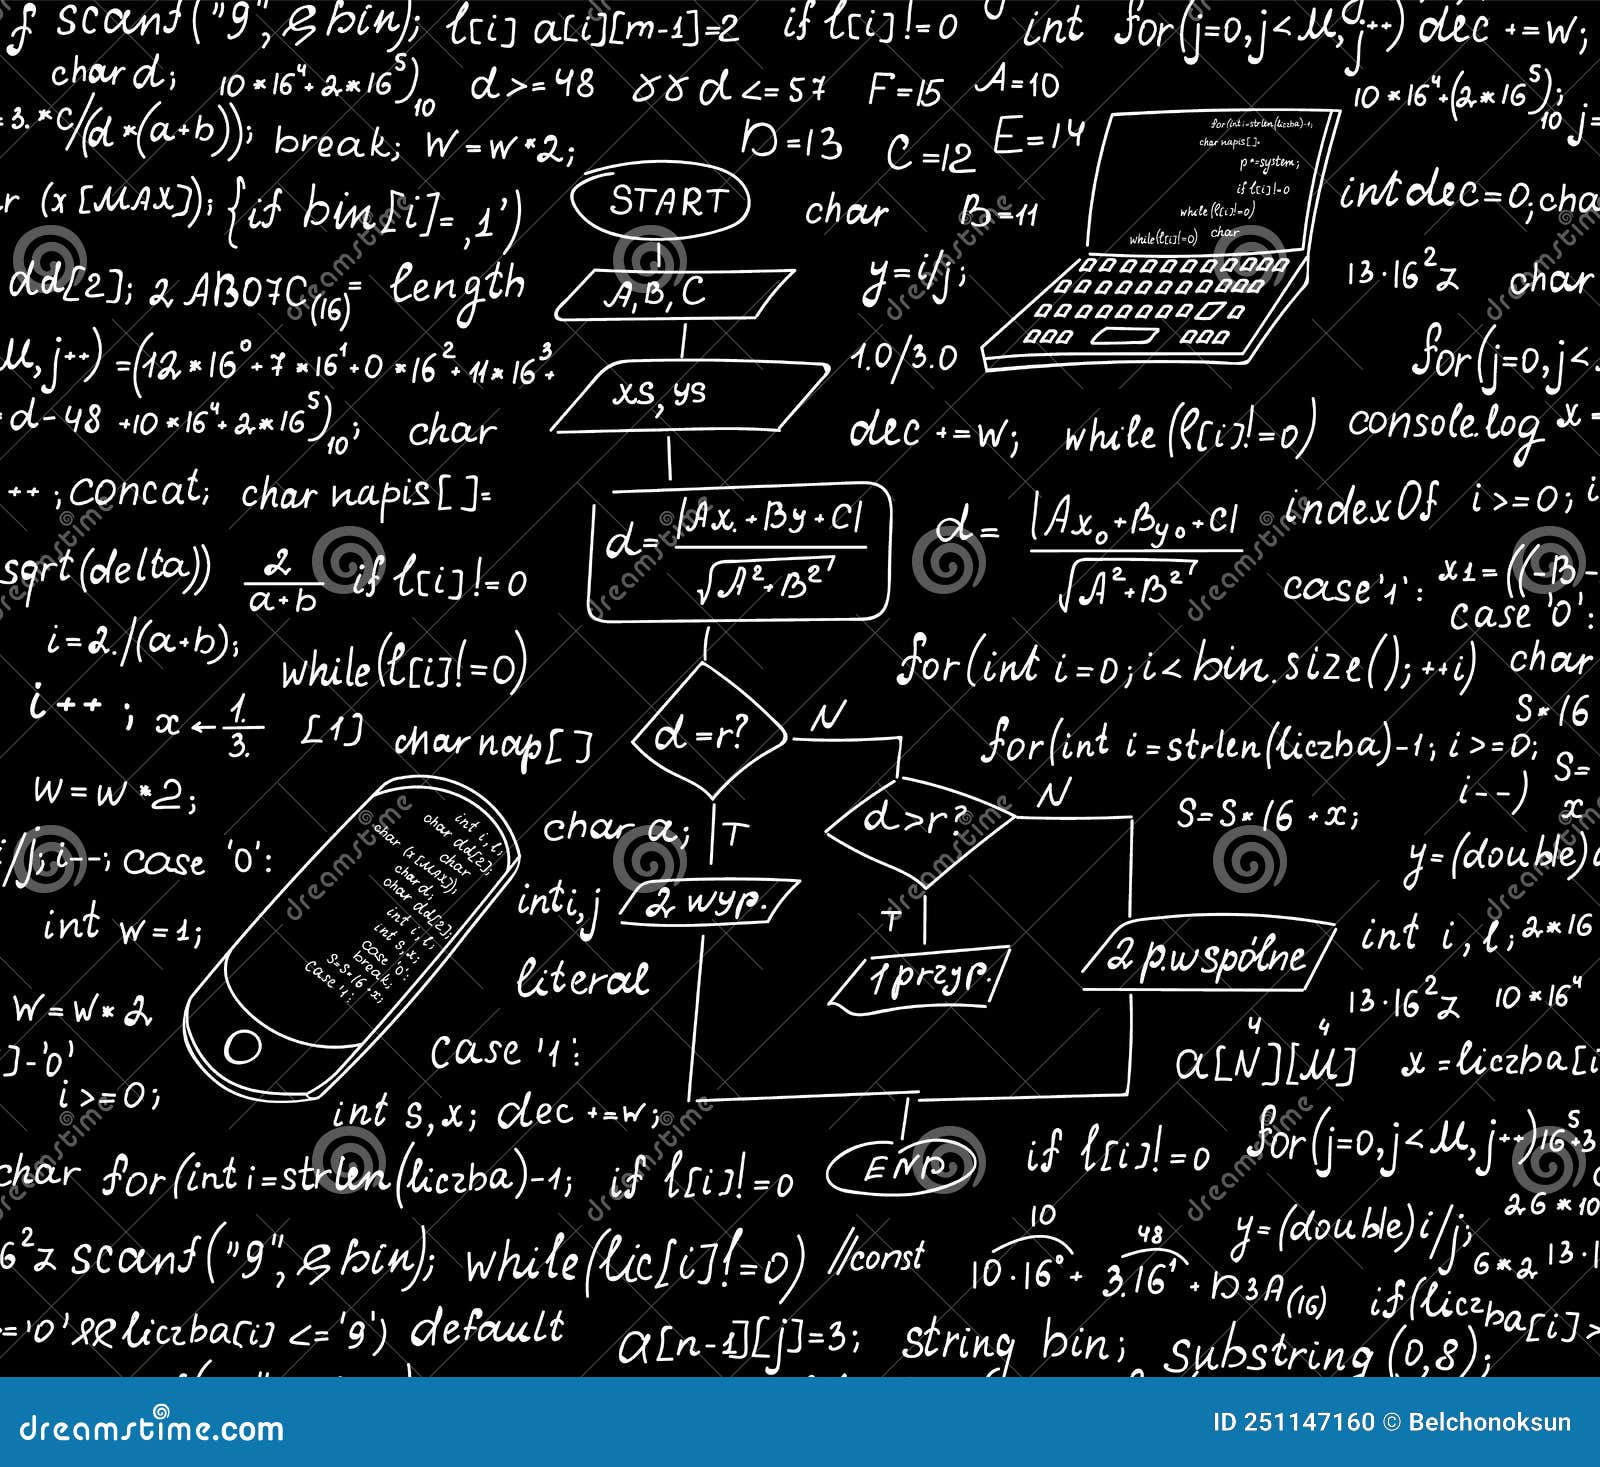 f scanf("9", &bin); l[i] a[i][m-1]=2 if l[i]!=0 int for(j=0,j<M,j++) dec +=w;
char d; 10*16⁴+2*16⁵)₁₀ d>=48 && d<=57 F=15 A=10 10*16⁴+(2*16⁵);₁₀ j=
=3.*C/(d*(a+b)); break; W=w*2; D=13 C=12 E=14
for(int i=strlen(liczba)-1;
char napis[]=
p*=system;
if l[i]!=0
while(l[i]!=0)
while(l[i]!=0) char
r (x[MAX]); {if bin[i]=,1') START char B=11 int dec=0;cha
dd[2]; 2AB07C₍₁₆₎= length A,B,C y=i/j; 13·16²z char
M,j++) =(12*16⁰+7*16¹+0*16²+11*16³+ xs, ys 1.0/3.0 for(j=0,j<.
=d-48 +10*16⁴+2*16⁵)₁₀; char dec +=w; while(l[i]!=0) console.log x=
++;concat; char napis[]= d=|Ax+By+C|/√A²+B² d=|Ax₀+By₀+C|/√A²+B² indexOf i>=0; i
sqrt(delta)) 2/a+b if l[i]!=0 case'1': x1=((-B-
case '0':
i=2./(a+b); while(l[i]!=0) for(int i=0;i<bin.size();++i) char
i++; x←1./3. [1] char nap[] d=r? N for(int i=strlen(liczba)-1; i>=0; S*16
S=
W=w*2; i--) x
char a; T d>r? N S=S*16+x;
/j;i--; case '0': y=(double)i
int i,l;
char dd[2];
char
char (x[MAX]);
char d;
char dd[2];
int i,l;
int s,x;
case '0':
break;
S=S*16+x;
case '1':
int w=1; int i,j 2 wyp. T int i,l; 2*16
literal 1 przyp. 2 p.wspólne
W=W*2 13·16²z 10*16⁴
]-'0' case '1': a[N][M] x=liczba[i
4 4
i>=0; int s,x; dec +=w;
char for(int i=strlen(liczba)-1; if l[i]!=0 END if l[i]!=0 for(j=0,j<M,j++) 16⁵+3
26*10
6²z scanf("9", &bin); while(lic[i]!=0) //const 10 10·16⁰+ 48 3.16¹+D3A₍₁₆₎ y=(double)i/j; 6*2 13·1
='0'&&liczba[i]<='9') default a[n-1][j]=3; string bin; substring(0,8); if(liczba[i]>
dreamstime.com ID 251147160 © Belchonoksun